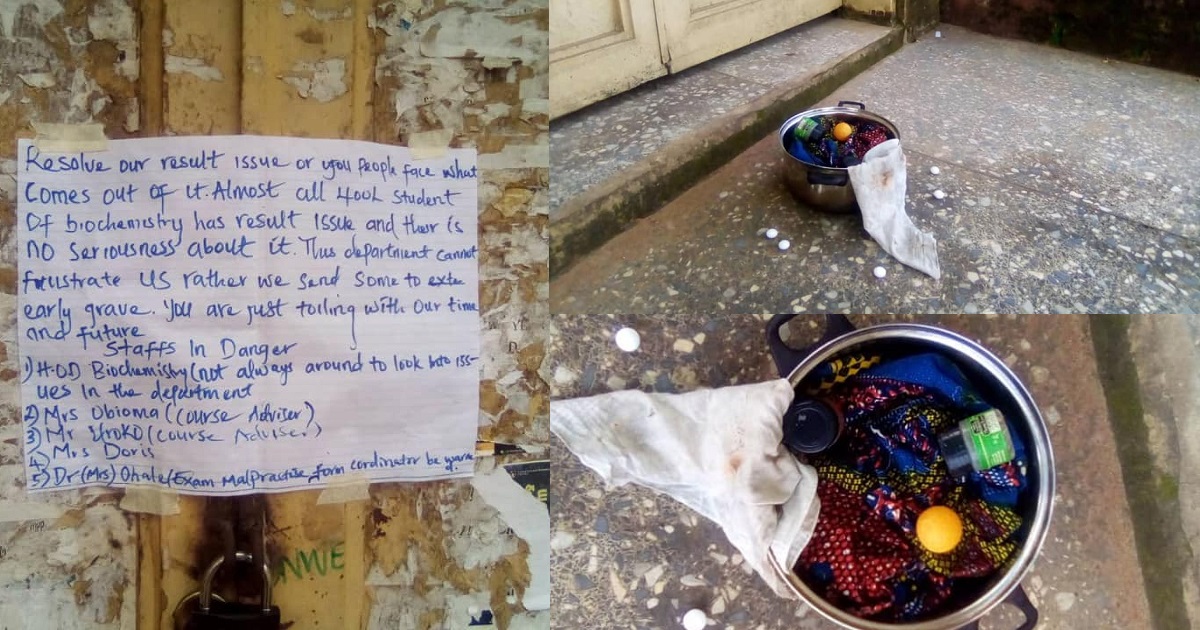 Resolve our result issue or you people face what
Comes out of it. Almost all 400L student
Of biochemistry has result issue and ther is
no seriousness about it. This department cannot
frustrate us rather we send some to
early grave. You are just toiling with our time
and future
Staffs In Danger
1) H.O.D Biochemistry (not always around to look into iss-
ues in the department
2) Mrs Obioma (Course Adviser)
3) Mr (Course Adviser)
4) Mrs Doris
5) Dr (Mrs) Ohale/Exam Malpractise form cordinator be warn
NWE